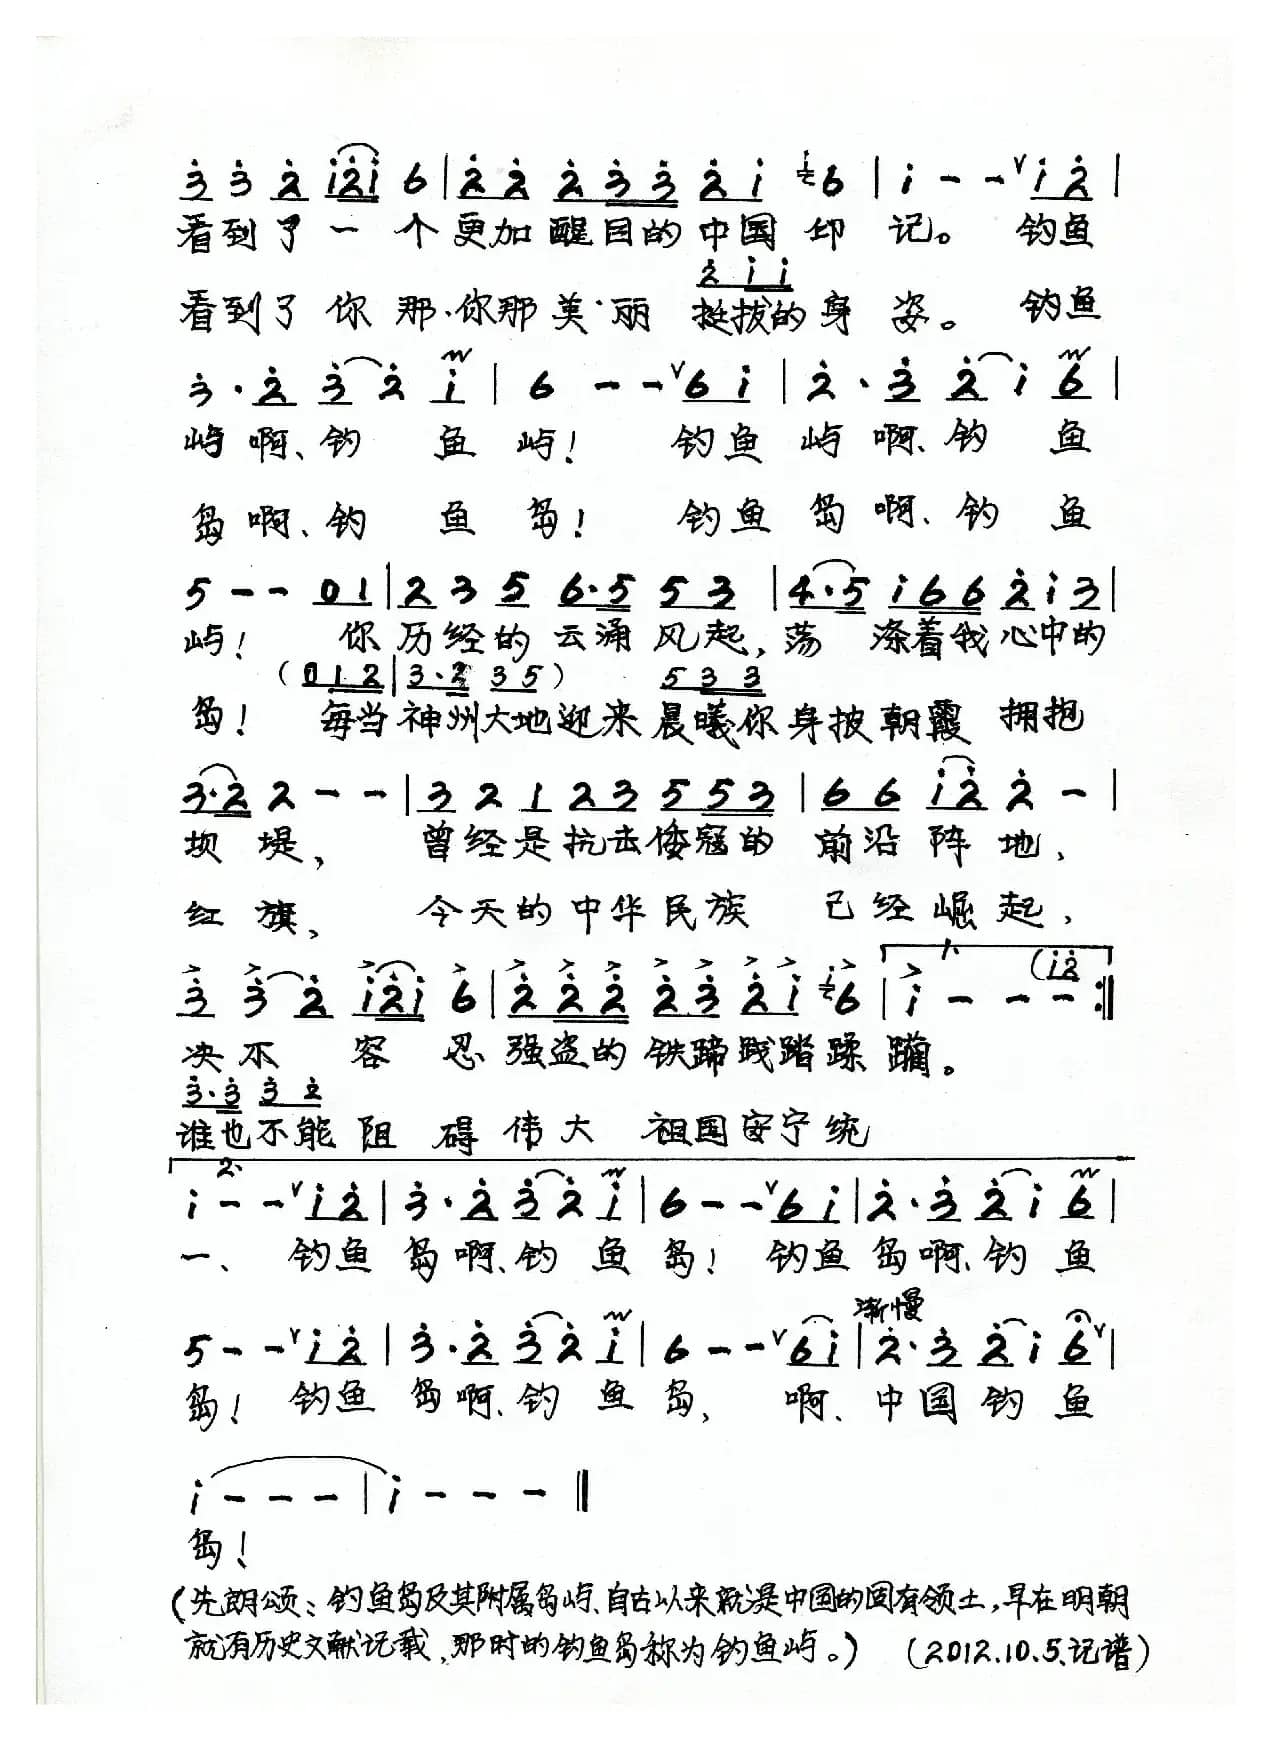 3 3 2 i2i 6 | 2 2 2 3 3 2 i 6 | i - - i 2 |
看到了一个更加醒目的中国印记。 钓鱼
2 i i
看到了你那、你那美丽 挺拔的身姿。 钓鱼
3 · 2 3 2 i | 6 - - 6 i | 2 · 3 2 i 6 |
屿啊、钓 鱼 屿! 钓鱼 屿啊、钓 鱼
岛啊、钓 鱼 岛! 钓鱼 岛啊、钓 鱼
5 - - 0 1 | 2 3 5 6·5 5 3 | 4·5 i 6 6 2 i 3 |
屿! 你历经的云涌风起,荡 涤着我心中的
(0 1 2 | 3·2 3 5) 5 3 3
岛! 每当神州大地迎来晨曦你身披朝霞 拥抱
3·2 2 - - | 3 2 1 2 3 5 5 3 | 6 6 i 2 2 - |
坝堤, 曾经是抗击倭寇的 前沿阵地、
红旗、 今天的中华民族 已经崛起、
1.
3 3 2 i2i 6 | 2 2 2 2 3 2 i 6 | i - - - (i 2 :||
决不 容 忍强盗的铁蹄践踏蹂躏。
3·3 3 2
谁也不能阻 碍伟大 祖国安宁统
2.
i - - i 2 | 3 · 2 3 2 i | 6 - - 6 i | 2 · 3 2 i 6 |
一、 钓鱼 岛啊、钓 鱼 岛! 钓鱼岛啊、钓 鱼
渐慢
5 - - i 2 | 3 · 2 3 2 i | 6 - - 6 i | 2 · 3 2 i 6 |
岛! 钓鱼 岛啊、钓 鱼 岛、 啊、中国钓 鱼
i - - - | i - - - ||
岛!
(先朗颂:钓鱼岛及其附属岛屿、自古以来就是中国的固有领土,早在明朝
就有历史文献记载,那时的钓鱼岛称为钓鱼屿。) (2012.10.5.记谱)